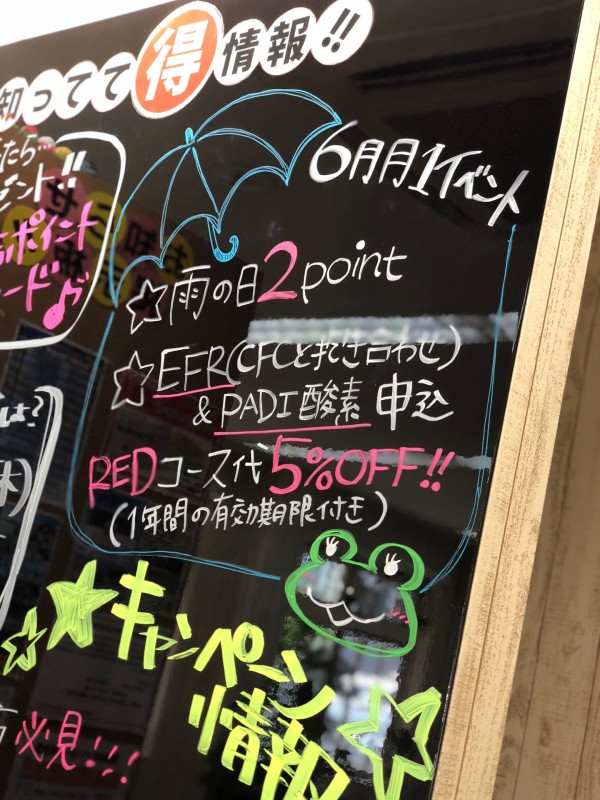 知ってて得情報!!
たら…
ント!!
ポイント
ード♪
6月月1イベント
☆雨の日2point
☆EFR(CFCと抱き合わせ)
& PADI酸素 申込
REDコース代5%OFF!!
(1年間の有効期限付き)
☆☆キャンペーン
情報☆
必見!!!